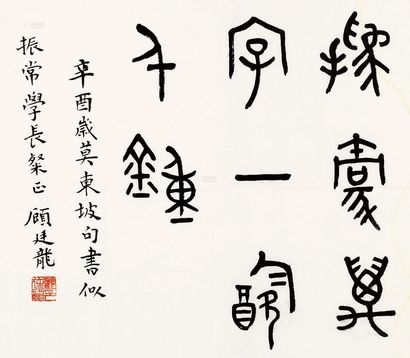 揮毫萬
字一飲
千鍾
辛酉歲莫東坡句書似
振常學長粲正 顧廷龍